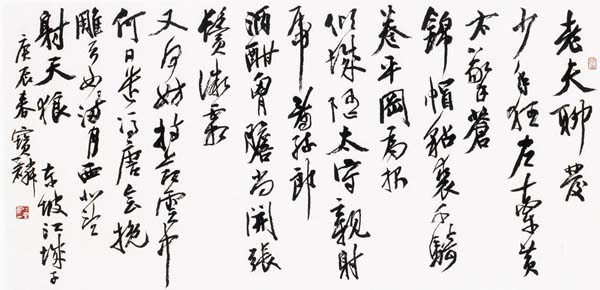 老夫聊發
少年狂左牽黃
右擎蒼
錦帽貂裘千騎
卷平岡為報
傾城隨太守親射
虎看孫郎
酒酣胸膽尚開張
鬢微霜
又何妨持節雲中
何日遣馮唐會挽
雕弓如滿月西北望
射天狼 東坡江城子
庚辰春寶麟